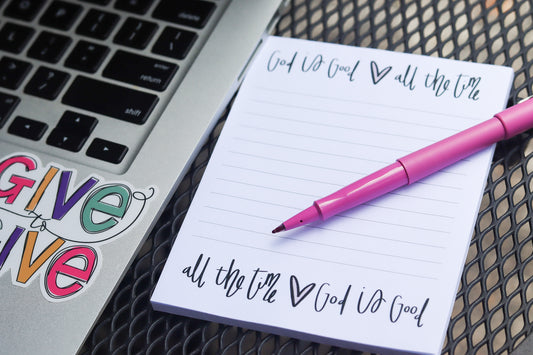 enter
return
shift
GIVE
to
GIVE
God is Good ♥ all the time
all the time ♥ God is Good